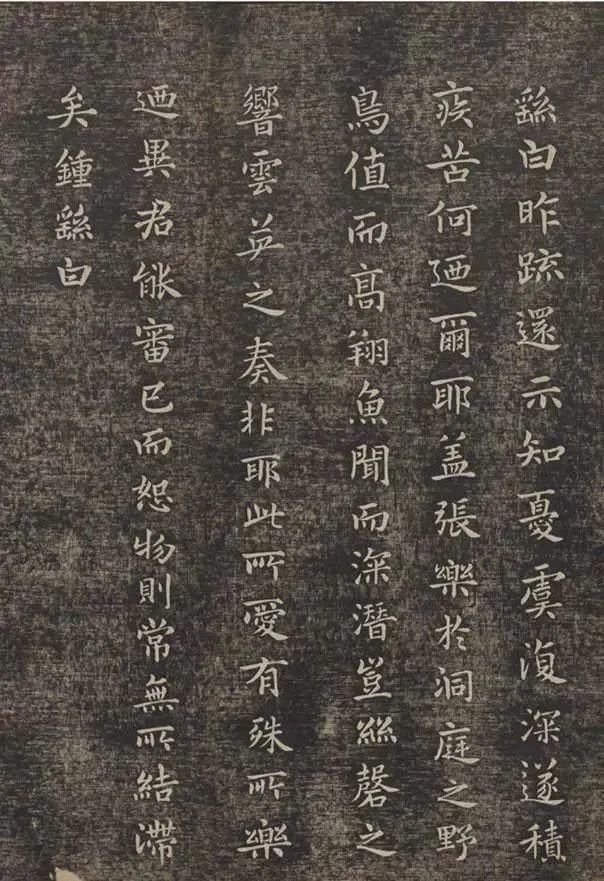 繇白昨疏還示知憂虞復深遂積
疾苦何迺爾耶盖張樂於洞庭之野
鳥值而高翔魚聞而深潛豈絲磬之
響雲英之奏非耶此所愛有殊所樂
迺異君能審已而恕物則常無所結滯
矣鍾繇白